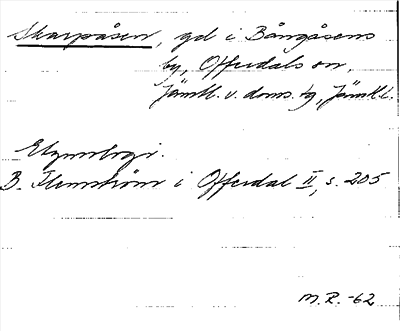 Skarpåsen, gd i Bångåsens
by, Offerdals sn,
Jämtl. v. doms. tg, Jämtl. l.
Etymologi.
B. Flemström i Offerdal II, s. 205
M.R. -62